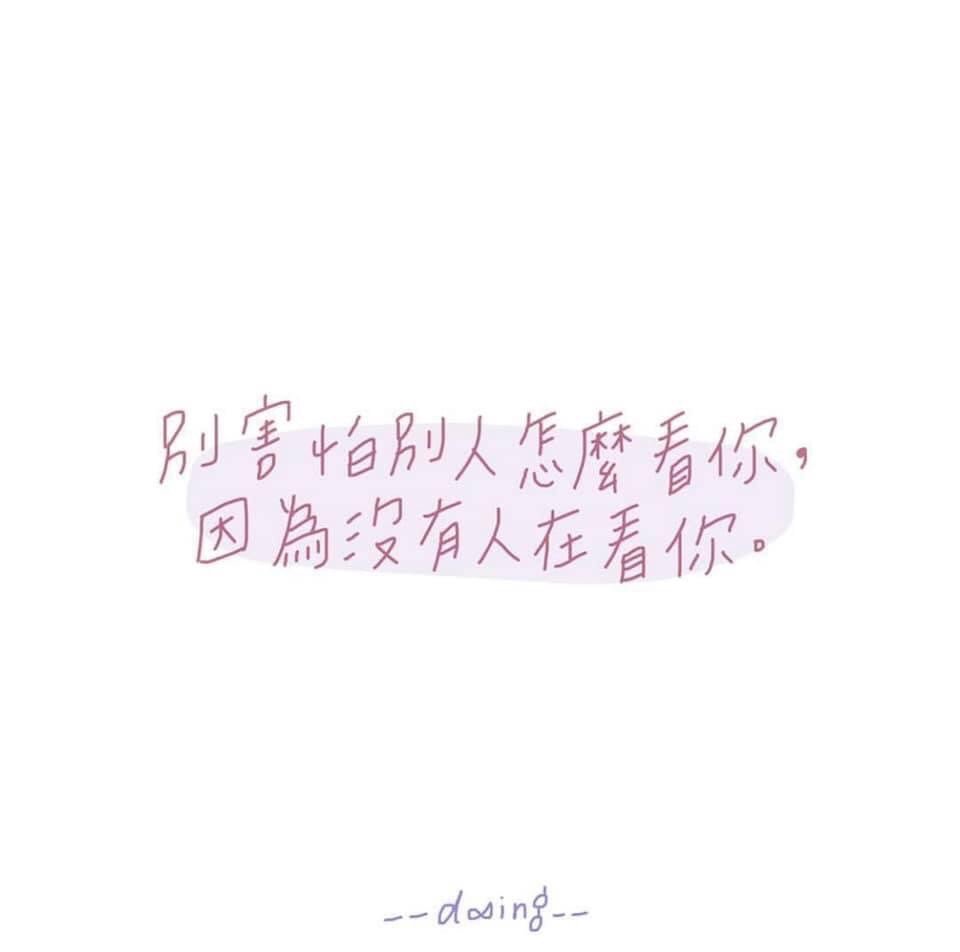 別害怕別人怎麼看你,
因為沒有人在看你。
--dosing--